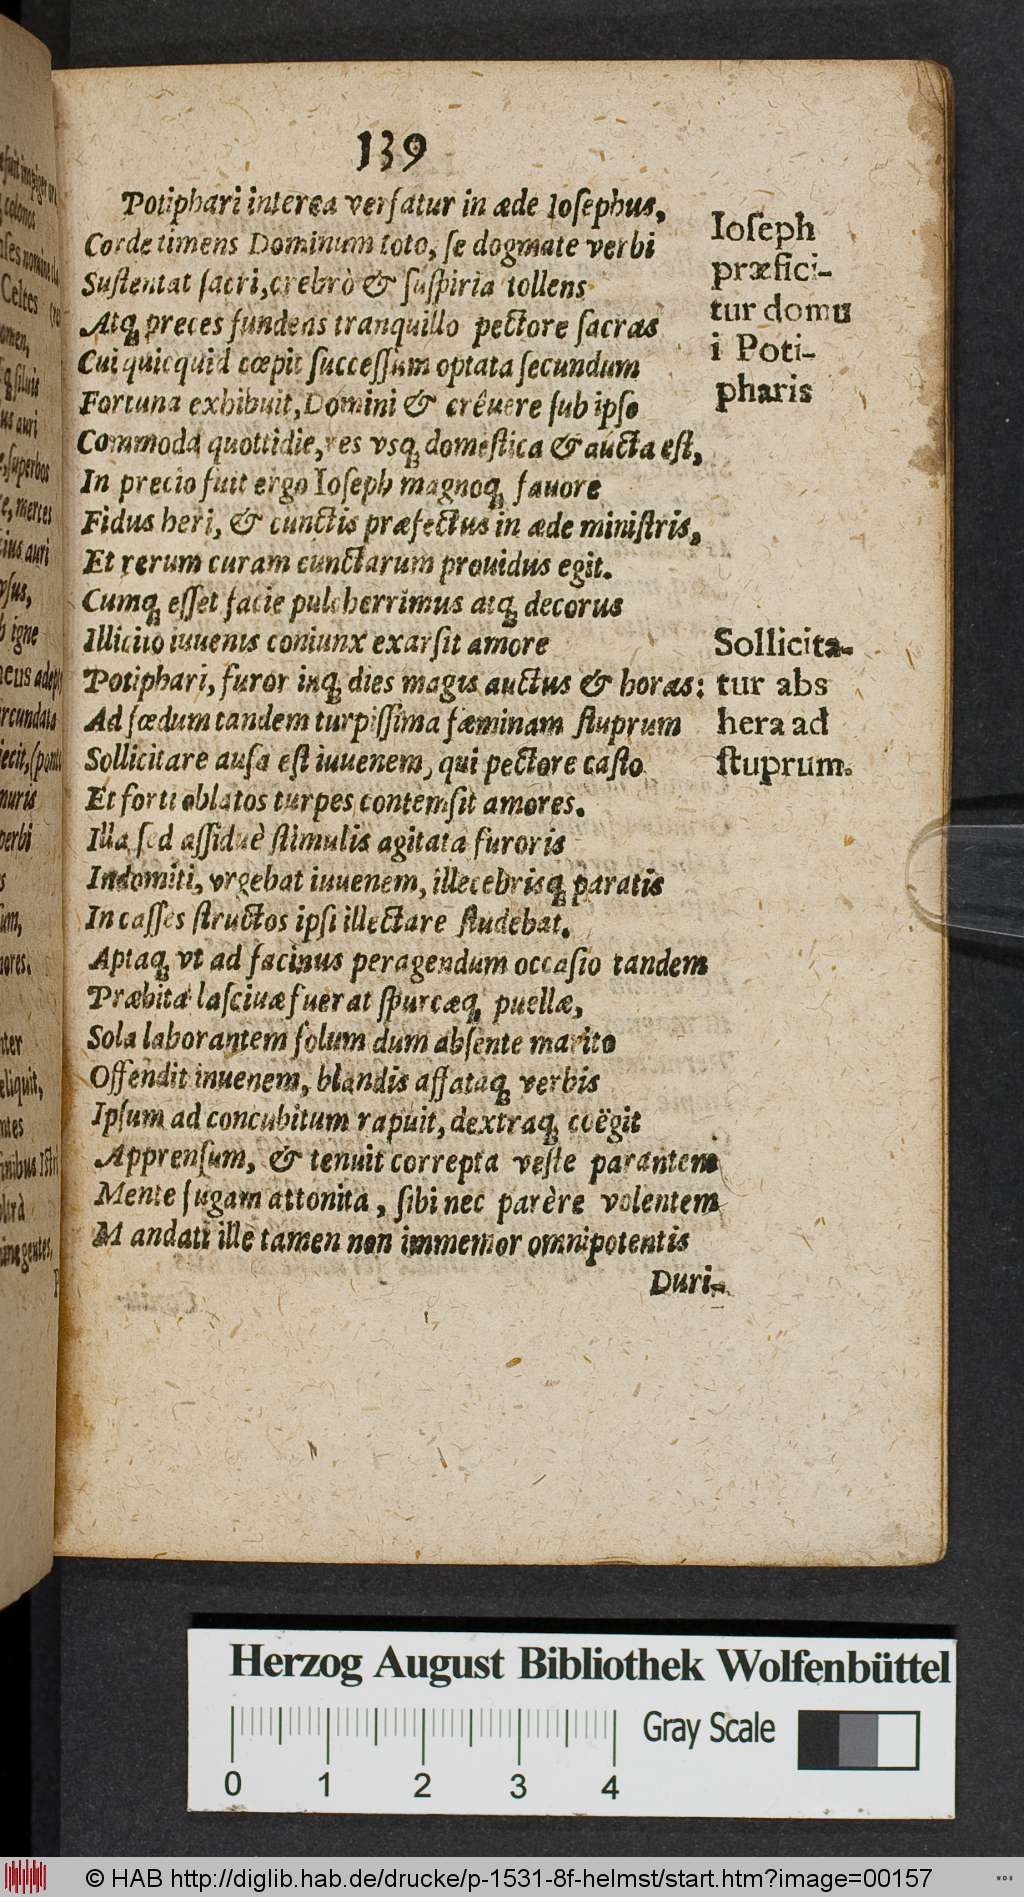 139
Potiphari interea verſatur in æde Ioſephus,
Corde timens Dominum toto, ſe dogmate verbi
Suſtentat ſacri, crebrò & ſuſpiria tollens
Atq́ꝫ preces fundens tranquillo pectore ſacras
Cui quicquid cœpit ſucceſſum optata ſecundum
Fortuna exhibuit, Domini & crêuere ſub ipſo
Commoda quottidie, res vsq́ꝫ domeſtica & aucta eſt,
In precio fuit ergo Ioſeph magnoq́ꝫ fauore
Fidus heri, & cunctis præfectus in æde miniſtris,
Et rerum curam cunctarum prouidus egit.
Cumq́ꝫ eſſet facie pulcherrimus atq́ꝫ decorus
Illicito iuuenis coniunx exarſit amore
Potiphari, furor inq́ꝫ dies magis auctus & horas:
Ad fœdum tandem turpiſſima fæminam ſtuprum
Sollicitare auſa eſt iuuenem, qui pectore caſto
Et forti oblatos turpes contemſit amores.
Illa ſed aſſiduè ſtimulis agitata furoris
Indomiti, vrgebat iuuenem, illecebrisq́ꝫ paratis
In caſſes ſtructos ipſi illectare ſtudebat.
Aptaq́ꝫ vt ad facinus peragendum occaſio tandem
Præbita laſciuæ fuerat ſpurcæq́ꝫ puellæ,
Sola laborantem ſolum dum abſente marito
Offendit iuuenem, blandis affataq́ꝫ verbis
Ipſum ad concubitum rapuit, dextraq́ꝫ coëgit
Apprenſum, & tenuit correpta veſte parantem
Mente fugam attonita, ſibi nec parère volentem
Mandati ille tamen non immemor omnipotentis
Duri-
Ioſeph
præfici-
tur domu
i Poti-
pharis
Sollicita-
tur abs
hera ad
ſtuprum.
Herzog August Bibliothek Wolfenbüttel
Gray Scale
0 1 2 3 4
© HAB http://diglib.hab.de/drucke/p-1531-8f-helmst/start.htm?image=00157